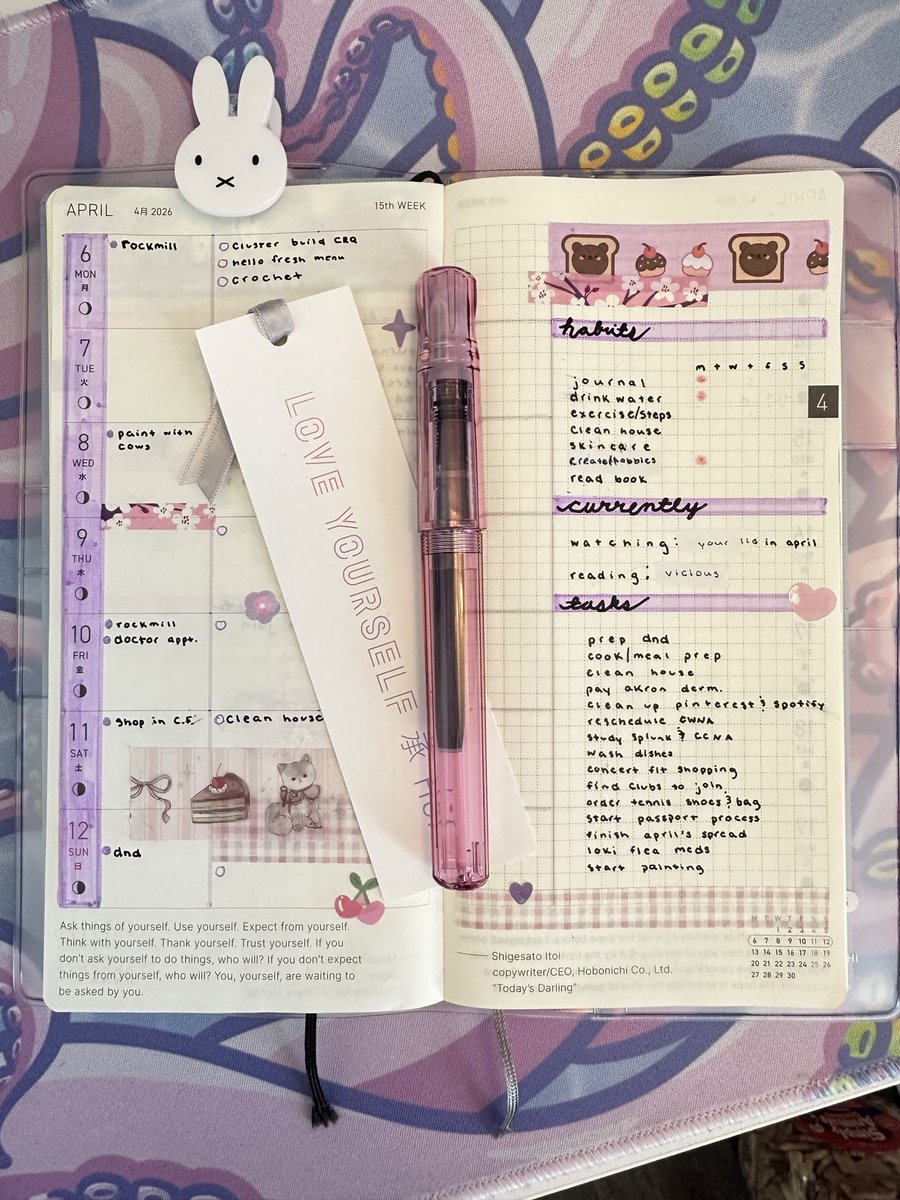 APRIL 4月 2026 15th WEEK
6
MON
月
rockmill
Cluster build CRQ
hello fresh menu
crochet
7
TUE
火
8
WED
水
paint with
cows
9
THU
木
10
FRI
金
rockmill
doctor appt.
11
SAT
土
Shop in C.F.
Clean house
12
SUN
日
dnd
LOVE YOURSELF 承
Ask things of yourself. Use yourself. Expect from yourself.
Think with yourself. Thank yourself. Trust yourself. If you
don't ask yourself to do things, who will? If you don't expect
things from yourself, who will? You, yourself, are waiting to
be asked by you.
habits
m t w t f s s
journal
drink water
exercise/steps
clean house
skincare
create/hobbies
read book
4
currently
watching: your lie in april
reading: vicious
tasks
prep dnd
cook/meal prep
clean house
pay akron derm.
clean up pinterest & spotify
reschedule GWNA
study splunk & CCNA
wash dishes
concert fit shopping
find clubs to join
order tennis shoes & bag
start passport process
finish april's spread
loki flea meds
start painting
M T W T F S S
1 2 3 4 5
6 7 8 9 10 11 12
13 14 15 16 17 18 19
20 21 22 23 24 25 26
27 28 29 30
Shigesato Itoi
copywriter/CEO, Hobonichi Co., Ltd.
"Today's Darling"